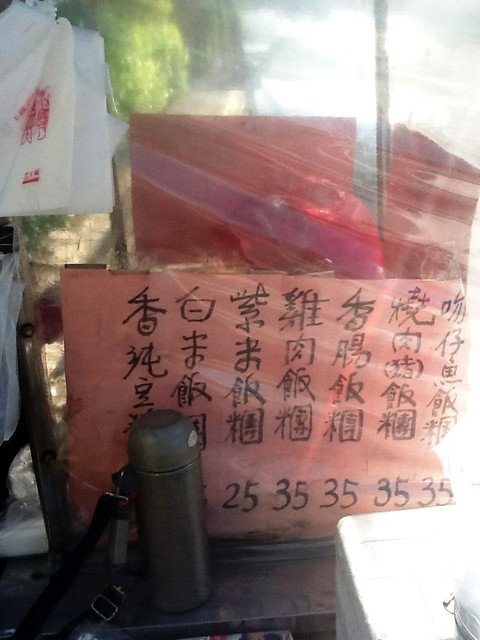 吻仔魚飯糰 35
燒肉(豬)飯糰 35
香腸飯糰 35
雞肉飯糰 35
紫米飯糰 25
白米飯糰
香純豆